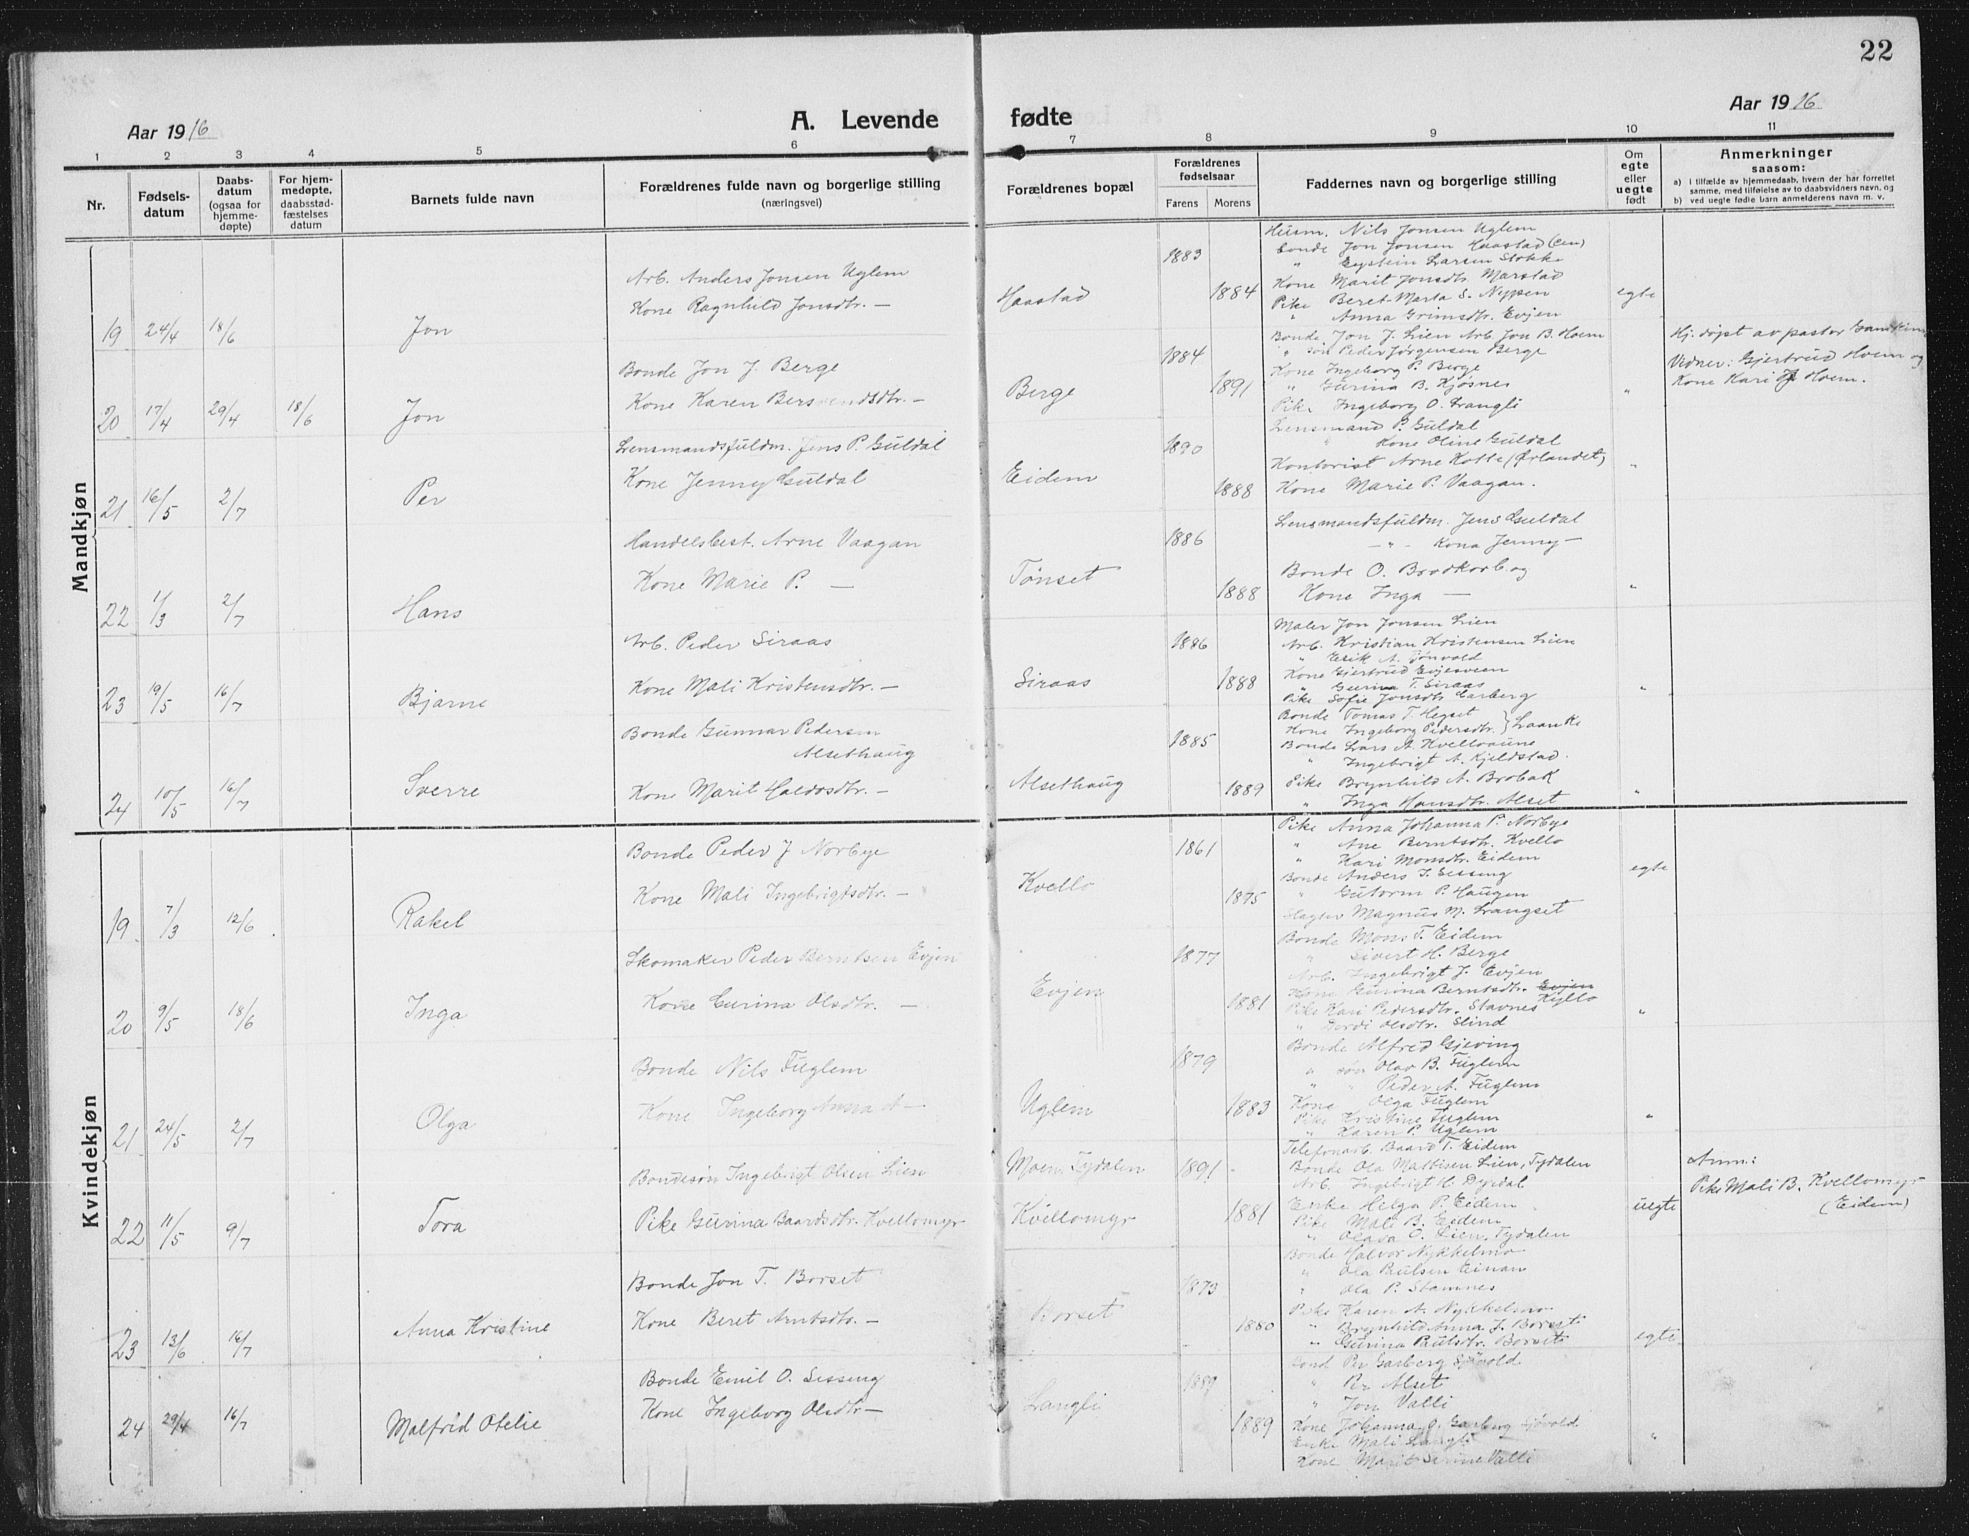 22
Aar 1916
A. Levende fødte
Aar 1916
1 2 3 4 5 6 7 8 9 10 11
Nr.
Fødsels-
datum
Daabs-
datum
(ogsaa for
hjemme-
døpte)
For hjem-
medøpte,
daabsstad-
fæstelses
datum
Barnets fulde navn
Forældrenes fulde navn og borgerlige stilling
(næringsvei)
Forældrenes bopæl
Forældrenes
fødselsaar
Farens Morens
Faddernes navn og borgerlige stilling
Om
egte
eller
uegte
født
Anmerkninger
saasom:
a) i tilfælde av hjemmedaab, hvem der har forrettet
samme, med tilføielse av to daabsvidners navn, og
b) ved uegte fødte barn anmelderens navn m. v.
Mandkjøn
19 24/4 18/6
Jon
Arb. Anders Jonsen Uglem
Kone Ragnhild Jonsdtr. —
Haastad
1883
1884
Husm. Nils Jonsen Uglem
Bonde Jon Jonsen Haastad (Een)
" Eystein Larsen Stokke
Kone Marit Jonsdtr. Marstad
Pike Beret-Marta S. Nypen
" Anna Grimsdtr. Evjen
egte
20 17/4 29/4 18/6
Jon
Bonde Jon J. Berge
Kone Karen Bersvendsdtr. —
Berge
1884
1891
Bonde Jon J. Lien Arb. Jon B. Hoem
" søn Peder Jørgensen Berge
Kone Ingeborg P. Berge
" Gurina B. Kjøsnes
Pike Ingeborg O. Trangli
"
Hj. døpt av pastor
Vidner: Gjertrud Hoem og
Kone Kari J. Hoem.
21 16/5 2/7
Per
Lensmandsfuldm. Jens P. Guldal
Kone Jenny Guldal
Eidem
1890
1888
Lensmand P. Guldal
" Kone Oline Guldal
Kontorist Arne Kotte (Ørlandet)
Kone Marie P. Vaagan.
"
22 1/3 2/7
Hans
Handelsbest. Arne Vaagan
Kone Marie P. —
Tønset
1886
1888
Lensmandsfuldm. Jens Guldal
— " — Kona Jenny —
Bonde O. Brodkorb og
Kone Inga —
"
23 19/5 16/7
Bjarne
Arb. Peder Siraas
Kone Mali Kristensdtr. —
Siraas
1886
1888
Maler Jon Jonsen Lien
Arb. Kristian Kristensen Lien
" Erik A. Tønvold
Kone Gjertrud Evjesveen
" Gurina T. Siraas
Pike Sofie Jonsdtr. Garberg
"
24 10/5 16/7
Sverre
Bonde Gunnar Pedersen
Alsethaug
Kone Marit Haldosdtr. —
Alsethaug
1885
1889
Bonde Tomas T. Hegset
Kone Ingeborg Pedersdtr. } Laanke
Bonde Lars A. Kvelloaune
" Ingebrigt A. Kjeldstad.
Pike Brynhild A. Brobak
" Inga Hansdtr. Alset
"
Kvindekjøn
19 7/3 12/6
Rakel
Bonde Peder J Norbye
Kone Mali Ingebrigtsdtr. —
Kvello
1861
1875
Pike Anna Johanna P. Norbye
" Ane Berntsdtr. Kvello
" Kari Monsdtr. Eidem
Bonde Anders J. Sessing
" Gutorm P. Haugen
Slagter Magnus M. Langset
egte
20 9/5 18/6
Inga
Skomaker Peder Berntsen Evjen
Kone Gurina Olsdtr. —
Evjen
1877
1881
Bonde Mons T. Eidem
" Sivert H. Berge
Arb. Ingebrigt J. Evjen
Kone Gurina Berntsdtr. Evjen
Kyllo
Pike Kari Pedersdtr. Stavnes
" Olsdtr. Slind
"
21 24/5 2/7
Olga
Bonde Nils Fuglem
Kone Ingeborg Anna A —
Uglem
1879
1883
Bonde Alfred Gjeving
" søn Olav B. Fuglem
" " Peder A. Fuglem
Kone Olga Fuglem
Pike Kristine Fuglem
" Karen P. Uglem
"
22 11/5 9/7
Tora
Bondesøn Ingebrigt Olsen Lien
Pike Gurina Baardsdtr. Kvellomyr
Moen. Tydalen
Kvellomyr
1891
1881
Telefonarb. Baard T. Eidem
Bonde Ola Mattisen Lien, Tydalen
Arb. Ingebrigt H. Dyrdal
Enke Helga P. Eidem
Pike Mali B. Eidem
" O. Lien, Tydalen
uegte
Anm:
Pike Mali B. Kvellomyr
(Eidem)
23 13/6 16/7
Anna Kristine
Bonde Jon T. Borset
Kone Beret Arntsdtr. —
Borset
1873
1880
Bonde Halvor Nykkelmo
" Ola Paulsen Einan
" Ola P. Stamnes
Pike Karen A. Nykkelmo
" Brynhild Anna J. Borset
" Gurina Paulsdtr. Borset
egte
24 29/4 16/7
Malfrid Otelie
Bonde Emil O. Sessing
Kone Ingeborg Olsdtr —
Langli
1889
1889
Bond Per Garberg Sjøvold
" Per Alset
" Jon Valli
Kone Johanna O. Garberg Sjøvold
Enke Mali Langli
Kone Marit Valli
"